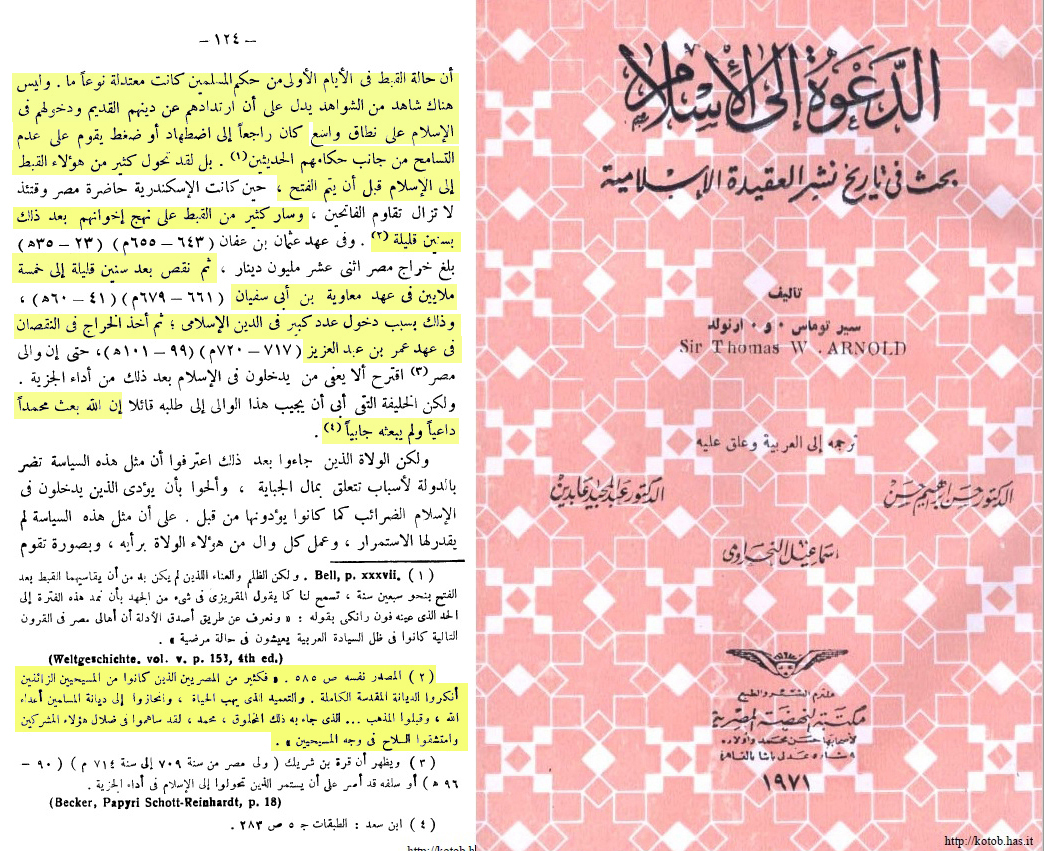 — ١٢٤ —
أن حالة القبط فى الأيام الأولى من حكم المسلمين كانت معتدلة نوعاً ما . وليس
هناك شاهد من الشواهد يدل على أن ارتدادهم عن دينهم القديم ودخولهم فى
الإسلام على نطاق واسع كان راجعاً إلى اضطهاد أو ضغط يقوم على عدم
التسامح من جانب حكامهم الحديثين (١) . بل لقد تحول كثير من هؤلاء القبط
إلى الإسلام قبل أن يتم الفتح ، حين كانت الإسكندرية حاضرة مصر وقتئذ
لا تزال تقاوم الفاتحين ، وسار كثير من القبط على نهج إخوانهم بعد ذلك
بسنين قليلة (٢) . وفى عهد عثمان بن عفان ( ٦٤٣ – ٦٥٥م ) ( ٢٣ – ٣٥ ه )
بلغ خراج مصر اثنى عشر مليون دينار ، ثم نقص بعد سنين قليلة إلى خمسة
ملايين فى عهد معاوية بن أبى سفيان ( ٦٦١ – ٦٧٩م ) ( ٤١ – ٦٠ ه ) ،
وذلك بسبب دخول عدد كبير فى الدين الإسلامى ؛ ثم أخذ الخراج فى النقصان
فى عهد عمر بن عبد العزيز ( ٧١٧ – ٧٢٠م ) ( ٩٩ – ١٠١ ه ) ، حتى إن والى
مصر (٣) اقترح ألا يعفى من يدخلون فى الإسلام بعد ذلك من أداء الجزية .
ولكن الخليفة التقى أبى أن يجيب هذا الوالى إلى طلبه قائلا إن الله بعث محمداً
داعياً ولم يبعثه جابياً (٤) .
ولكن الولاة الذين جاءوا بعد ذلك اعترفوا أن مثل هذه السياسة تضر
بالدولة لأسباب تتعلق بمال الجباية ، وألحوا بأن يؤدى الذين يدخلون فى
الإسلام الضرائب كما كانوا يؤدونها من قبل . على أن مثل هذه السياسة لم
يقدر لها الاستمرار ، وعمل كل وال من هؤلاء الولاة برأيه ، وبصورة تقوم
( ١ ) Bell, p. xxxvii. . ولكن الظلم والعناء اللذين لم يكن بد من أن يقاسيهما القبط بعد
الفتح بنحو سبعين سنة ، تسمح لنا كما يقول المقريزى فى شىء من الجهد بأن نمد هذه الفترة إلى
الحد الذى عينه فون رانكى بقوله : « ونعرف عن طريق أصدق الأدلة أن أهالى مصر فى القرون
التالية كانوا فى ظل السيادة العربية يعيشون فى حالة مرضية » .
(Weltgeschichte. vol. v. p. 153, 4th ed.)
( ٢ ) المصدر نفسه ص ٥٨٥ . « فكثير من المصريين الذين كانوا من المسيحيين الزائفين
أنكروا الديانة المقدسة الكاملة . والتعميد الذى يهب الحياة ، وانحازوا إلى ديانة المسلمين أعداء
الله ، وقبلوا المذهب ... الذى جاء به ذلك المخلوق ، محمد ، لقد ساهموا فى ضلال هؤلاء المشركين
وامتشقوا السلاح فى وجه المسيحيين » .
( ٣ ) ويظهر أن قرة بن شريك ( ولى مصر من سنة ٧٠٩ إلى سنة ٧١٤ م ) ( ٩٠ –
٩٦ ه ) أو سلفه قد أصر على أن يستمر الذين تحولوا إلى الإسلام فى أداء الجزية .
(Becker, Papyri Schott-Reinhardt, p. 18)
( ٤ ) ابن سعد : الطبقات ج ٥ ص ٢٨٣ .
الدَّعْوَةُ إلَى الإِسْلَام
بحث فى تاريخ نشر العقيدة الإسلامية
تأليف
سير توماس . و . ارنولد
Sir Thomas W. ARNOLD
ترجمه إلى العربية وعلق عليه
الدكتور حسن إبراهيم حسن
الدكتور عبد المجيد عابدين
اسماعيل النحراوى
ملتزم النشر والطبع
مكتبة النهضة المصرية
لأصحابها حسن محمد وأولاده
٩ شارع عدلى باشا بالقاهرة
١٩٧١
http://kotob.has.it